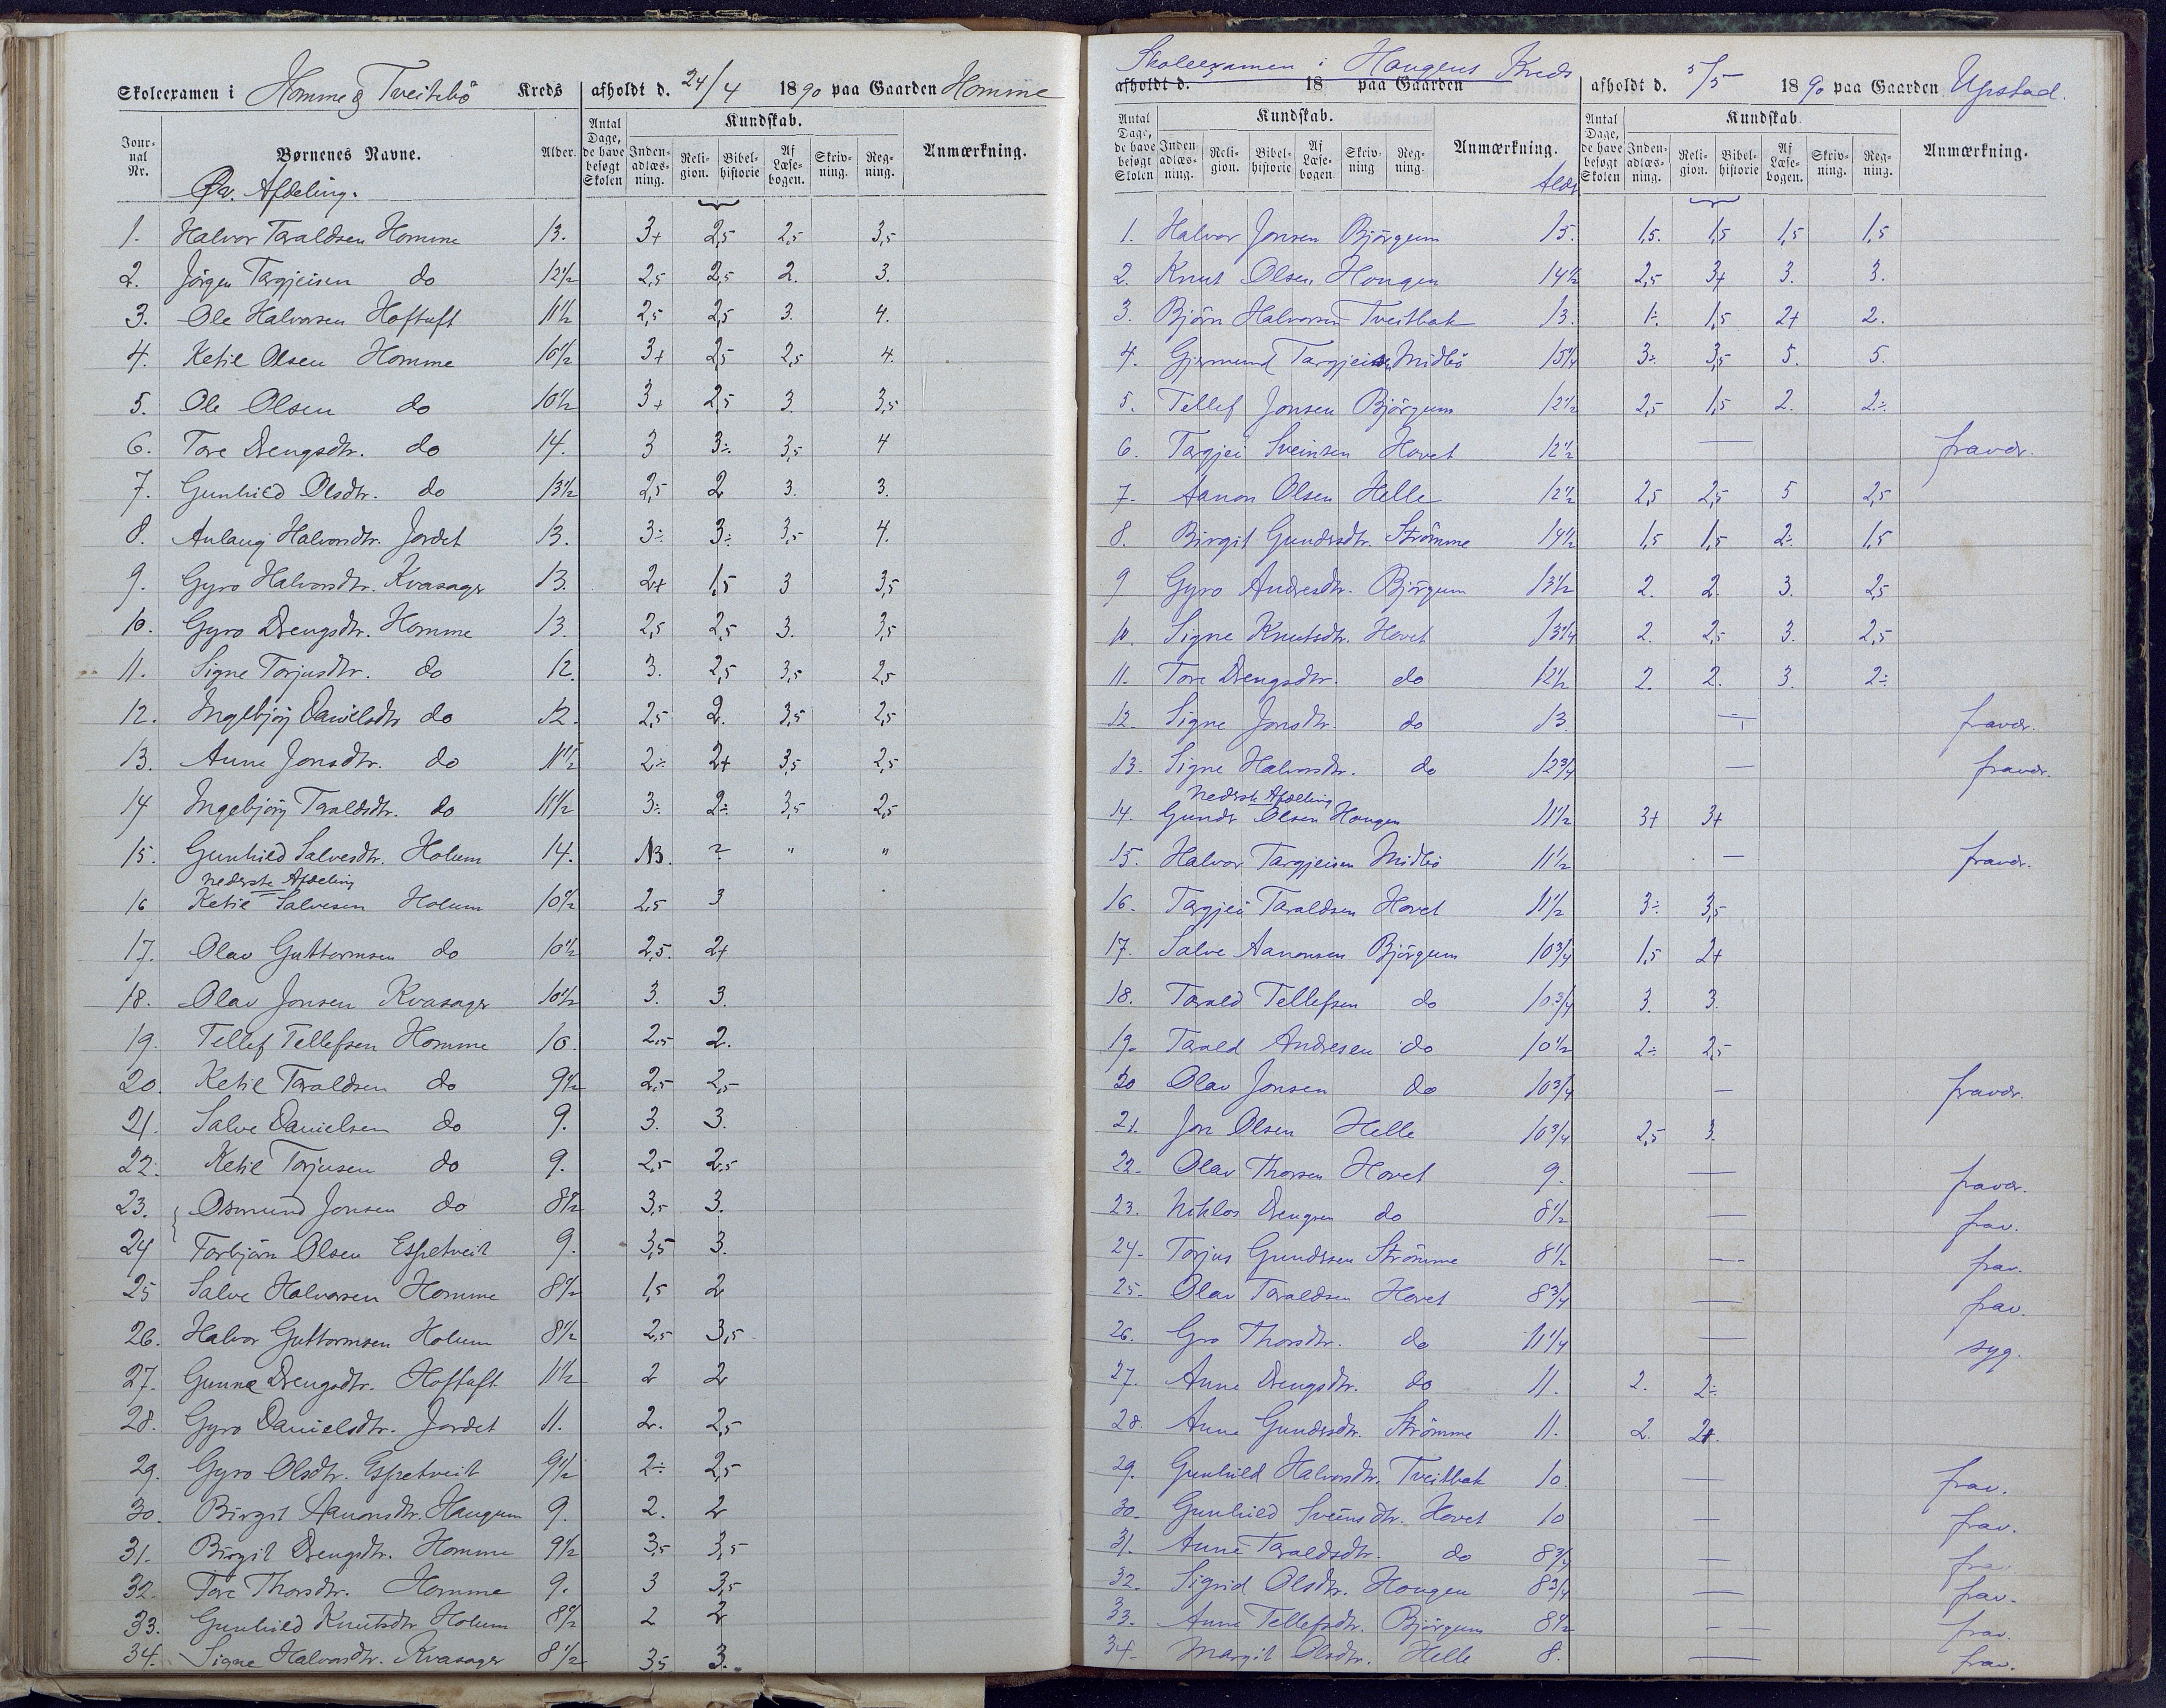 Skoleexamen i Homme & Tveitebö Kreds afholdt d. 24/4 1890 paa Gaarden Homme
Jour-nal Nr. Børnenes Navne. Alder. Antal Dage, de have besøgt Skolen Kundskab. Inden-adlæs-ning. Reli-gion. Bibel-historie Af Læse-bogen. Skriv-ning. Reg-ning. Anmærkning.
Øv. Afdeling.
1. Halvor Taraldsen Homme 13. 3+ 2,5 2,5 3,5
2. Jörgen Targjeisen do 12 1/2 2,5 2,5 2. 3.
3. Ole Halvorsen Hoftuft 11 1/2 2,5 2,5 3. 4.
4. Ketil Olsen Homme 10 1/2 3+ 2,5 2,5 4.
5. Ole Olsen do 10 1/2 3+ 2,5 3. 3,5
6. Tore Drengsdtr. do 14. 3 3÷ 3,5 4
7. Gunhild Olsdtr. do 13 1/2 2,5 2 3. 3.
8. Aulaug Halvorsdtr. Jordet 13. 3÷ 3÷ 3,5 4.
9. Gyro Halvorsdtr. Kvasager 13. 2+ 1,5 3 3,5
10. Gyro Drengsdtr. Homme 13. 2,5 2,5 3. 3,5
11. Signe Torjusdtr. do 12. 3. 2,5 3,5 2,5
12. Ingebjörg Danielsdtr do 12. 2,5 2. 3,5 2,5
13. Anne Jonsdtr. do 11 1/2 2÷ 2+ 3,5 2,5
14 Ingebjörg Taraldsdtr. do 11 1/2 3÷ 2÷ 3,5 2,5
15. Gunhild Salvesdtr. Holum 14. NB. ? " "
Nederste Afdeling
16 Ketil Salvesen Holum 10 1/2 2,5 3
17. Olav Guttormsen do 10 1/2 2,5. 2+
18. Olav Jonsen Kvasager 10 1/2 3. 3.
19. Tellef Tellefsen Homme 10. 2,5 2.
20. Ketil Taraldsen do 9 1/2 2,5 2,5
21. Salve Danielsen do 9. 3. 3.
22. Ketil Torjusen do 9. 2,5 2,5
23. Osmund Jonsen do 8 1/2 3,5 3.
24 Torbjörn Olsen Espetveit 9. 3,5 3.
25 Salve Halvorsen Homme 8 1/2 1,5 2
26. Halvor Guttormsen Holum 8 1/2 2,5 3,5
27. Gunne Drengsdtr. Hoftuft 11 1/2 2 2
28. Gyro Danielsdtr. Jordet 11. 2. 2,5
29. Gyro Olsdtr. Espetveit 9 1/2 2÷ 2,5
30. Birgit Aanonsdtr. Haugum 9. 2. 2
31. Birgit Drengsdtr. Homme 9 1/2 3,5 3,5
32. Tore Thorsdtr. Homme 9. 3 3,5
33. Gunhild Knutsdtr Holum 8 1/2 2 2
34. Signe Halvorsdtr. Kvasager 8 1/2 3,5 3.
Skoleexamen i Haugens Kreds
afholdt d. 18 paa Gaarden afholdt d. 5/5 1890 paa Gaarden Upstad.
Antal Dage, de have besøgt Skolen Kundskab. Inden-adlæs-ning. Reli-gion. Bibel-historie Af Læse-bogen Skriv-ning Reg-ning. Anmærkning. Antal Dage, de have besøgt Skolen Kundskab Inden-adlæs-ning. Reli-gion. Bibel-historie Af Læse-bogen. Skriv-ning. Reg-ning. Anmærkning.
Alder
1. Halvor Jonsen Björgum 15. 1,5. 1,5 1,5 1,5
2. Knut Olsen Hougen 14 1/2 2,5 3+ 3. 3.
3. Björn Halvorsen Tveitbak 13. 1÷ 1,5 2+ 2.
4. Gjermund Targjeisen Midbö 15 1/4 3÷ 3,5 5. 5.
5. Tellef Jonsen Björgum 12 1/2 2,5 1,5 2. 2÷
6. Targjei Sveinsen Hovet 12 1/2 — fravær.
7. Aanon Olsen Helle 12 1/2 2,5 2,5 5 2,5
8. Birgit Gundersdtr. Strömme 14 1/2 1,5 1,5 2÷ 1,5
9 Gyro Andresdtr. Björgum 13 1/2 2. 2. 3. 2,5
10 Signe Knutsdtr. Hovet 13 1/4 2. 2,5 3. 2,5
11. Tore Drengsdtr. do 12 1/2 2. 2. 3. 2÷
12. Signe Jonsdtr. do 13. — fravær.
13. Signe Halvorsdtr. do 12 3/4 — fravær.
Nederste Afdeling
14. Gunder Olsen Hougen 11 1/2 3+ 3+
15. Halvor Targjeisen Midbö 11 1/2 — fravær.
16. Targjei Taraldsen Hovet 11 1/2 3÷ 3,5
17. Salve Aanonsen Björgum 10 3/4 1,5 2+
18. Tarald Tellefsen do 10 3/4 3. 3.
19. Tarald Andresen do 10 1/2 2÷ 2,5
20 Olav Jonsen do 10 3/4 — fravær.
21. Jon Olsen Helle 10 3/4 2,5 3.
22. Olav Thorsen Hovet 9. — fravær.
23. Niklos Drengsen do 8 1/2 — frav.
24. Torjus Gundersen Strömme 8 1/2 — frav.
25. Olav Taraldsen Hovet 8 3/4 — frav.
26. Gro Thorsdtr. do 11 1/4 — syg.
27. Anne Drengsdtr. do 11. 2. 2÷
28. Anne Gundersdtr. Strömme 11. 2. 2+.
29. Gunhild Halvorsdtr. Tveitbak 10. — frav.
30. Gunhild Sveinsdtr. Hovet 10 — frav.
31. Anne Taraldsdtr. do 8 3/4 — frav.
32. Sigrid Olsdtr. Hougen 8 3/4 — frav.
33. Anne Tellefsdtr. Björgum 8 1/2 — frav.
34. Margit Olsdtr. Helle 8. — frav.